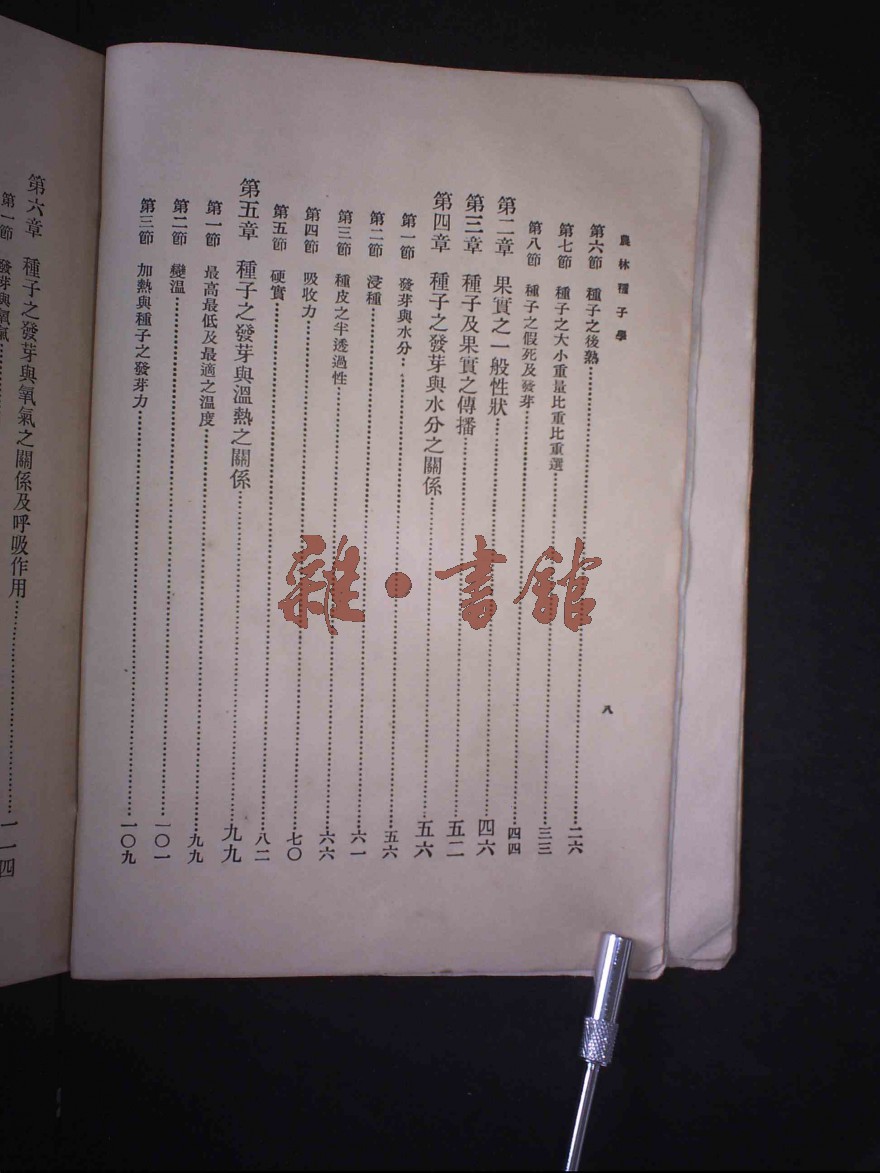 農林種子學
八
第六節 種子之後熟………二六
第七節 種子之大小重量比重比重選………三三
第八節 種子之假死及發芽………四四
第二章 果實之一般性狀………四六
第三章 種子及果實之傳播………五二
第四章 種子之發芽與水分之關係………五六
第一節 發芽與水分………五六
第二節 浸種………六一
第三節 種皮之半透過性………六六
第四節 吸收力………七〇
第五節 硬實………八二
第五章 種子之發芽與溫熱之關係………九九
第一節 最高最低及最適之温度………九九
第二節 變温………一〇一
第三節 加熱與種子之發芽力………一〇九
第六章 種子之發芽與氧氣之關係及呼吸作用………一一四
第一節 發芽與氧氣………
雜·書館